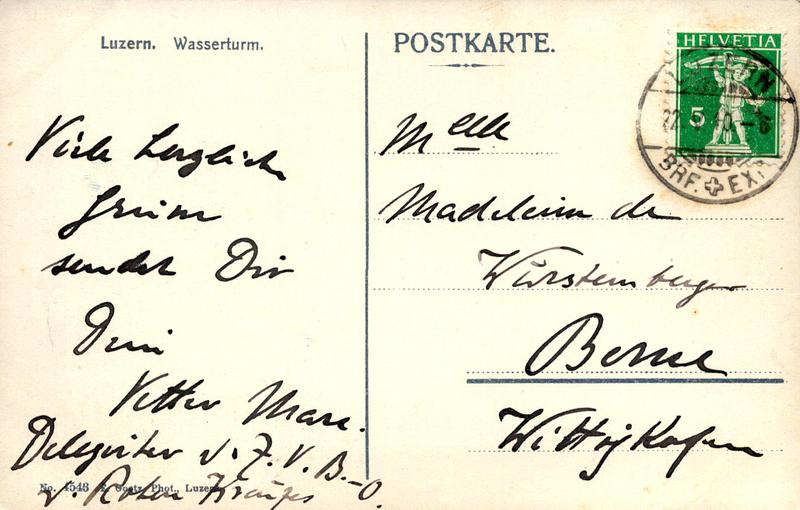 Luzern. Wasserturm.
POSTKARTE.
HELVETIA
5
LUZERN
BRF. EXP.
Viele herzliche
Grüsse
sendet Dir
Dein
Vetter Marc.
Delegierter
v. Roten Kreuzes
No. 4548 E. Goetz, Phot., Luzern
Melle
Madeleine de
Wurstemberger
Berne
Wittigkofen